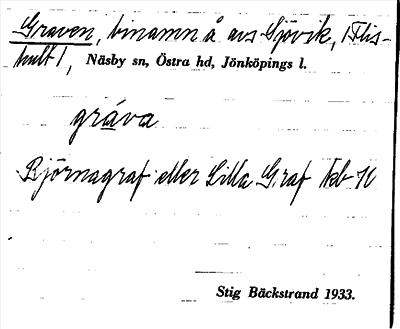 Graven, binamn å avs Sjövik, (Flis-
hult), Näsby sn, Östra hd, Jönköpings l.
gräva
Björnagraf eller Lilla Graf kb
Stig Bäckstrand 1933.